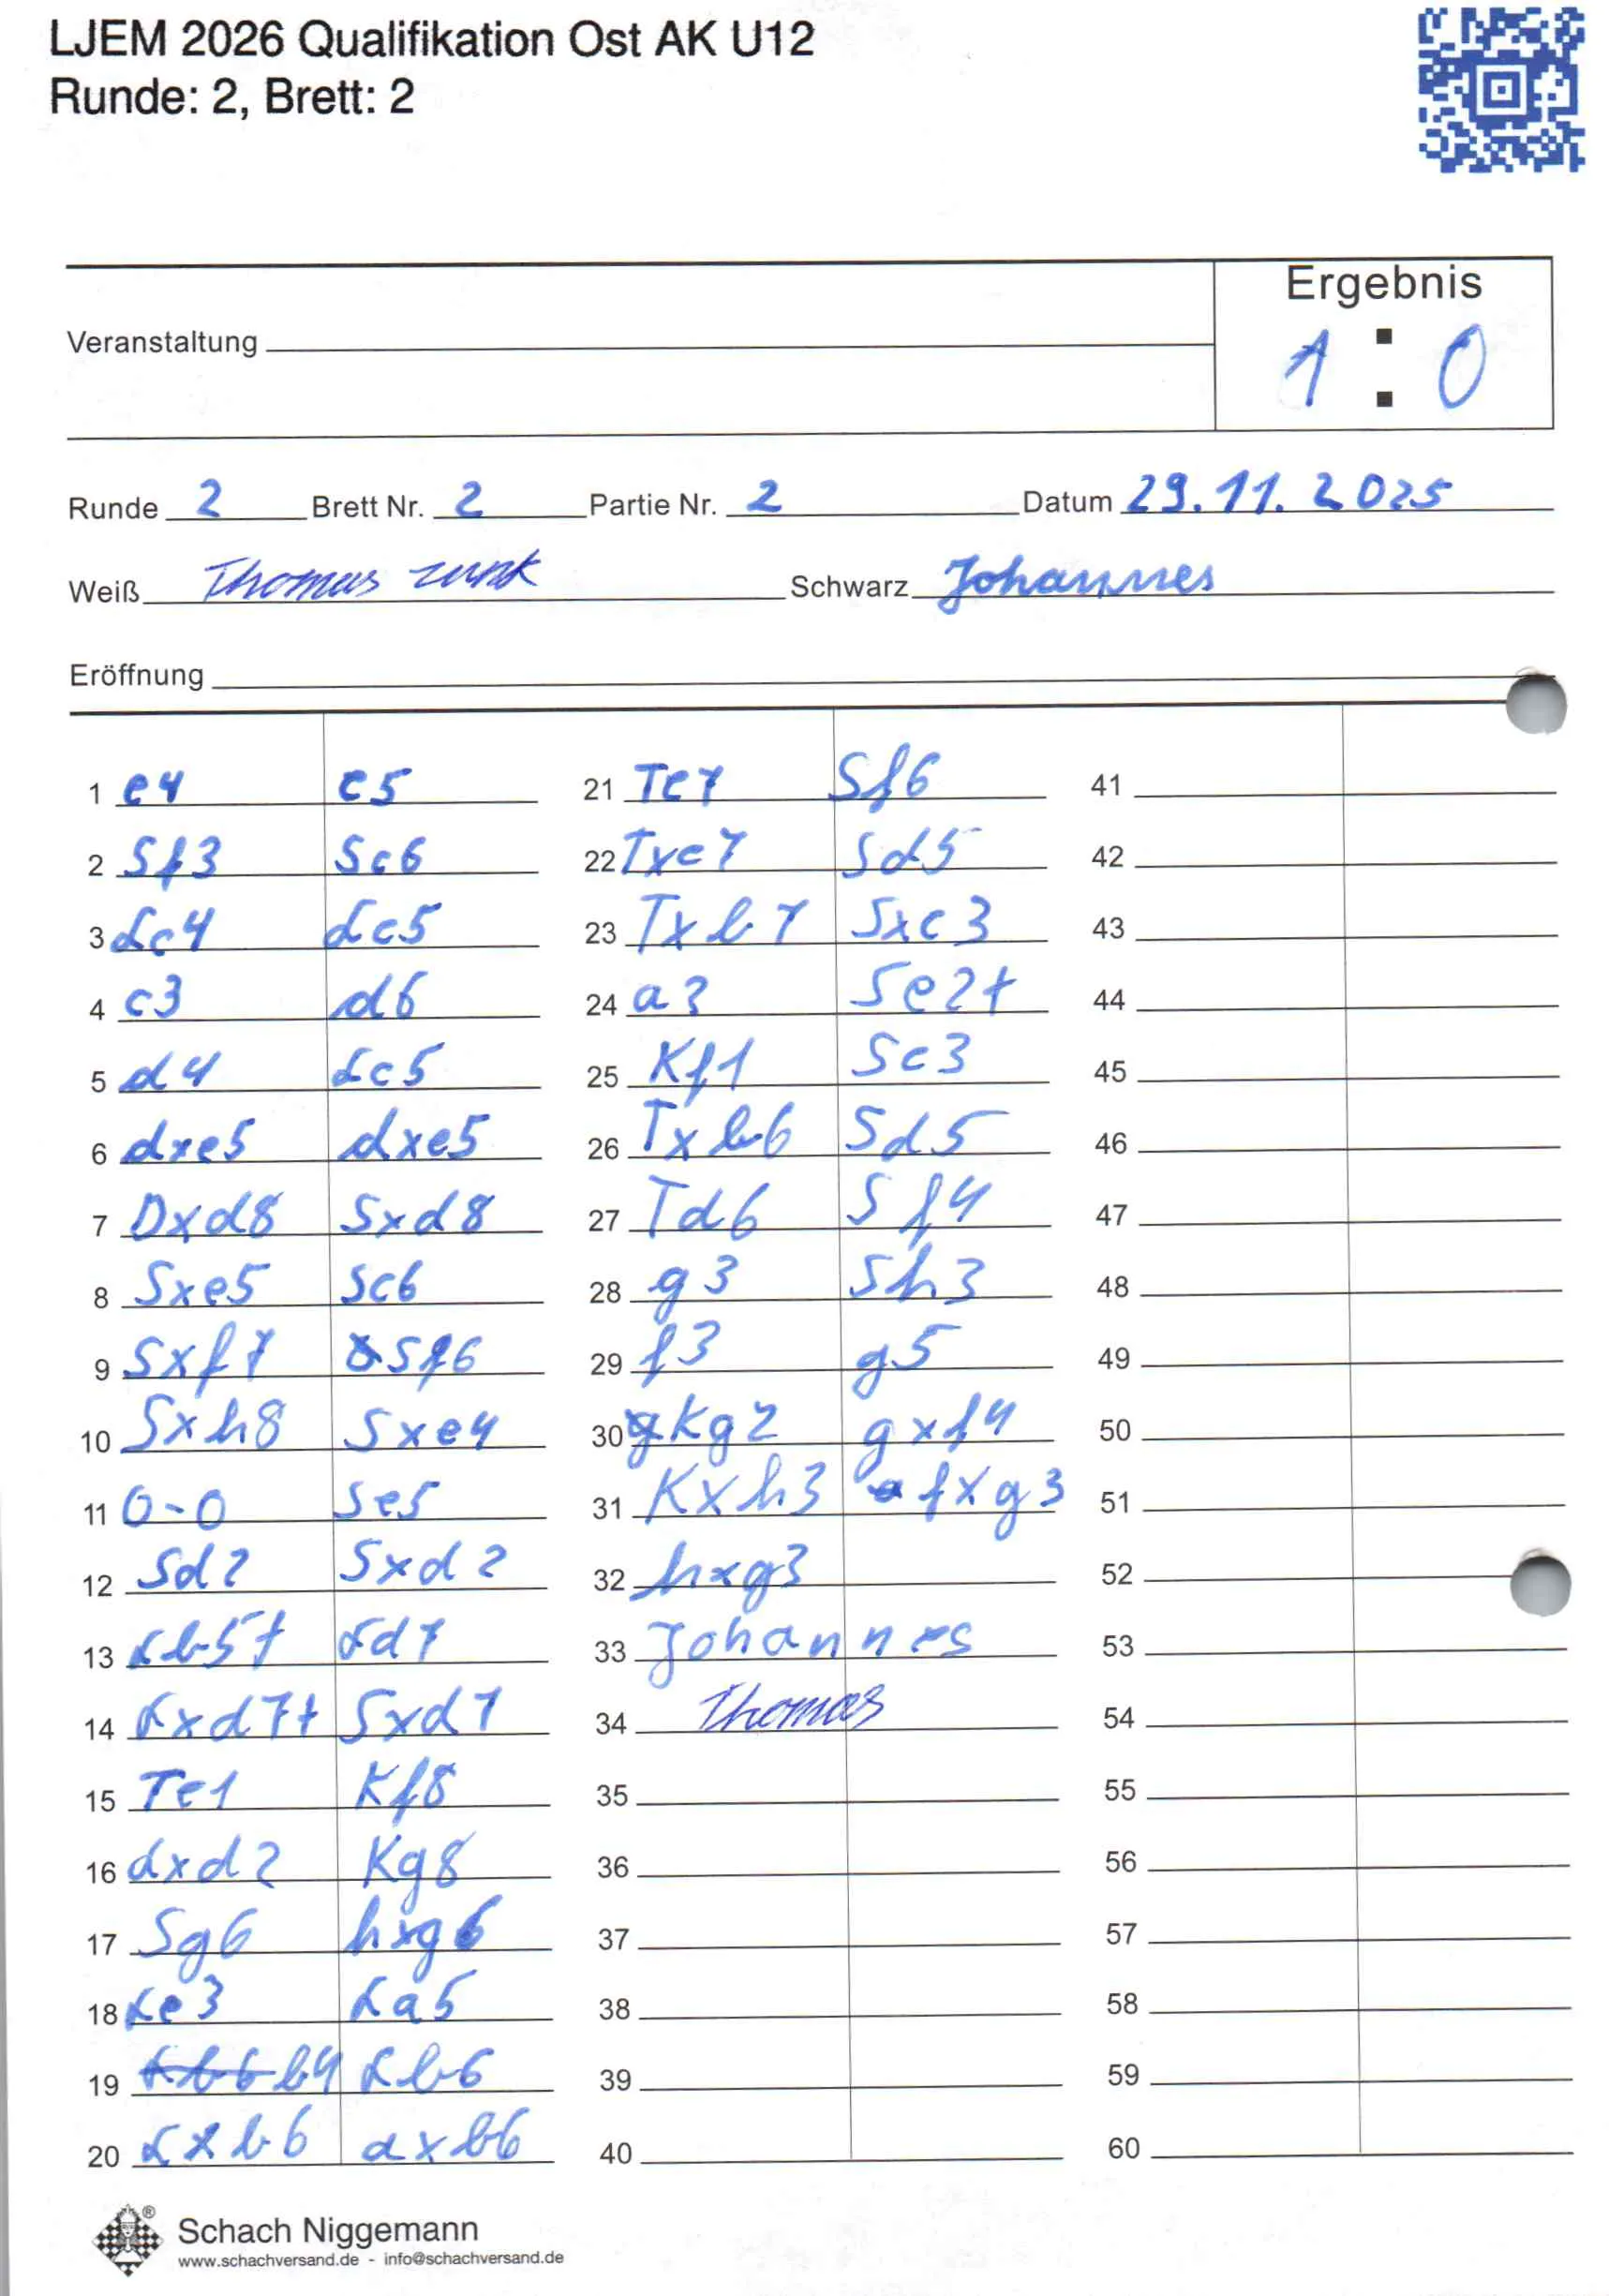 LJEM 2026 Qualifikation Ost AK U12
Runde: 2, Brett: 2
Ergebnis
Veranstaltung
1 : 0
Runde 2 Brett Nr. 2 Partie Nr. 2 Datum 29.11.2025
Weiß Thomas Zunk Schwarz Johannes
Eröffnung
1 e4 e5
2 Sf3 Sc6
3 Lc4 Lc5
4 c3 d6
5 d4 Lc5
6 dxe5 dxe5
7 Dxd8 Sxd8
8 Sxe5 Sc6
9 Sxf7 Sf6
10 Sxh8 Sxe4
11 0-0 Se5
12 Sd2 Sxd2
13 Lb5+ Ld7
14 Lxd7+ Sxd7
15 Te1 Kf8
16 Lxd2 Kg8
17 Sg6 hxg6
18 Le3 La5
19 b4 Lb6
20 Lxb6 axb6
21 Te7 Sf6
22 Txc7 Sd5
23 Txb7 Sxc3
24 a3 Se2+
25 Kf1 Sc3
26 Txb6 Sd5
27 Td6 Sf4
28 g3 Sh3
29 f3 g5
30 Kg2 gxf4
31 Kxh3 fxg3
32 hxg3
33 Johannes
34 Thomas
35
36
37
38
39
40
41
42
43
44
45
46
47
48
49
50
51
52
53
54
55
56
57
58
59
60
Schach Niggemann
www.schachversand.de - info@schachversand.de